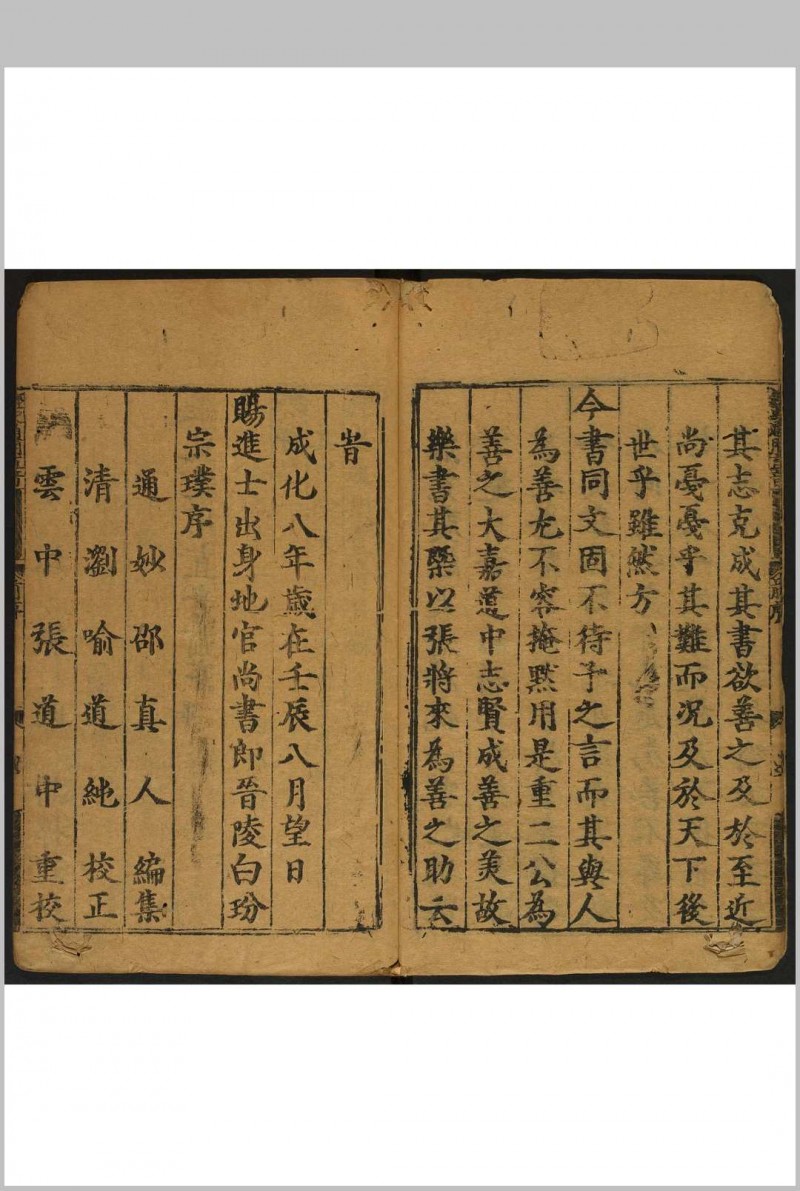 其志克成其書欲善之及於至近
尚戞戞乎其難而况及於天下後
世乎雖然方
今書同文固不待予之言而其與人
為善尤不容掩黙用是重二公為
善之大嘉道中志賢成善之美故
樂書其槩以張將來為善之助云
旹
成化八年歲在壬辰八月望日
賜進士出身地官尚書郎晉陵白玢
宗璞序
通妙邵真人編集
清瀏喻道純校正
雲中張道中重校